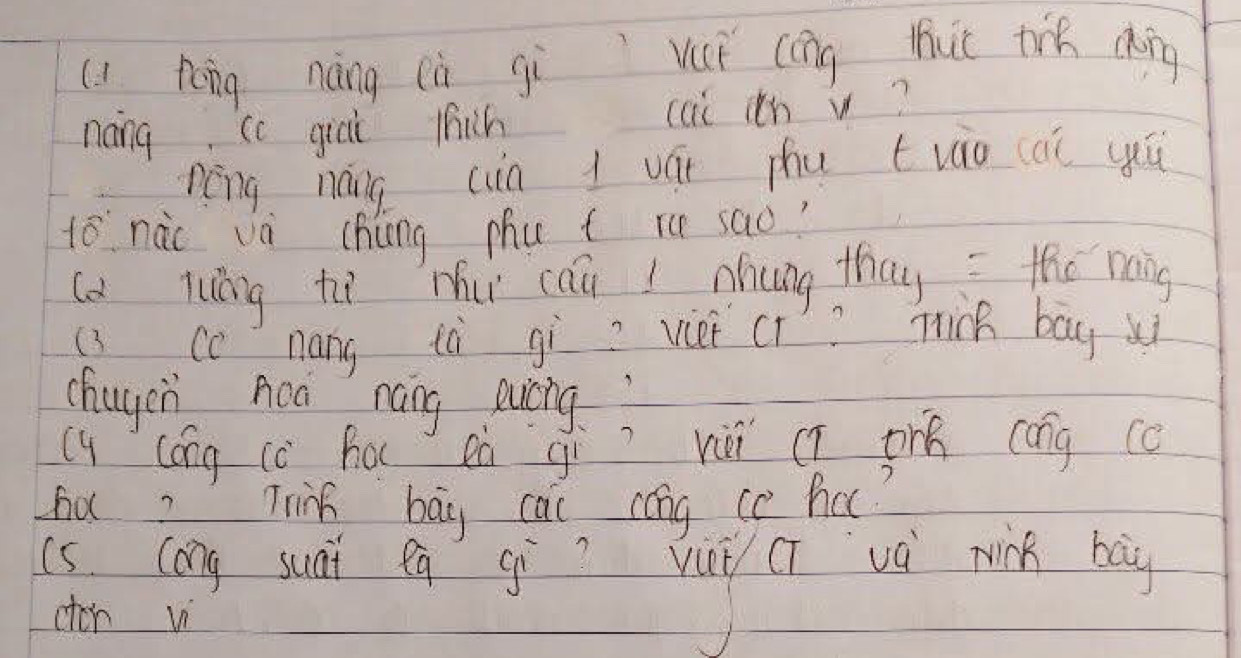 C1 Động năng là gì ? viết công thức tính động
năng, có giải thích các đơn vị ?
Động năng của 1 vật phụ t vào các yếu
tố nào và chúng phụ t ra sao ?
C2 Tương tự như câu 1 nhưng thay = thế năng
C3 Cơ năng là gì ? viết CT ? Trình bày sự
chuyển hoá năng lượng ?
C4 Công cơ học là gì ? viết CT tính công cơ
học ? Trình bày các công cơ học ?
C5. Công suất là gì ? viết CT và trình bày
đơn vị